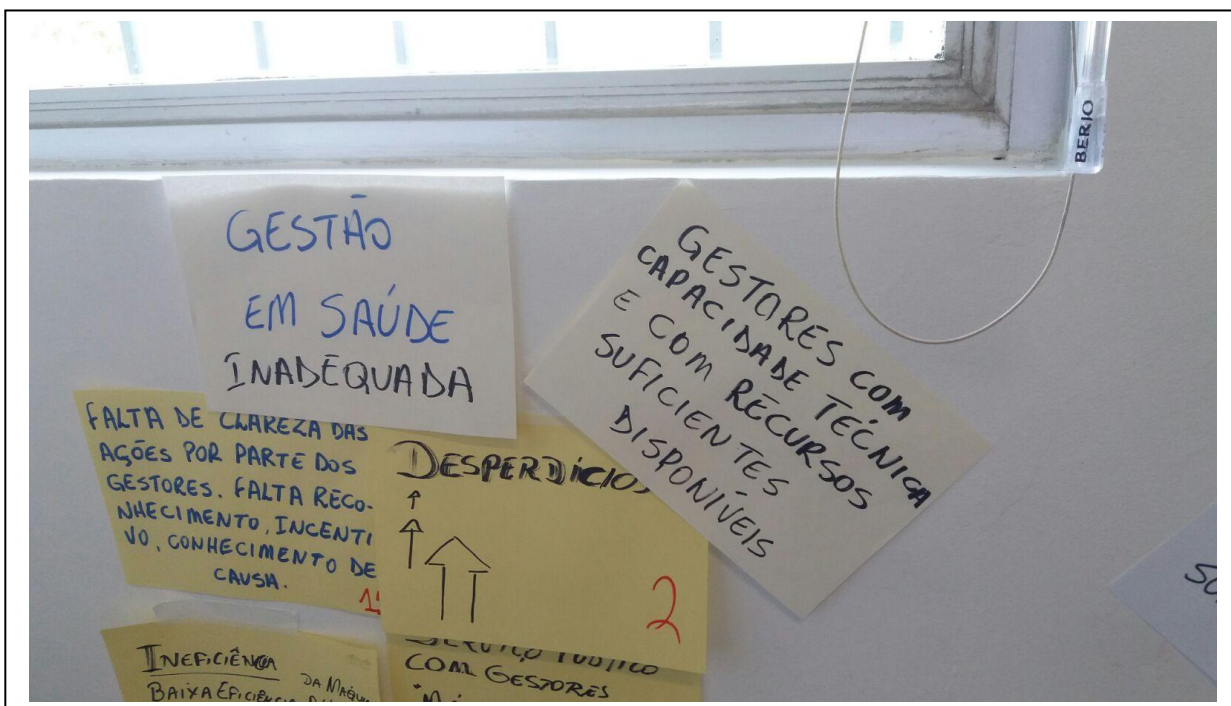 BERJO
GESTÃO
EM SAÚDE
INADEQUADA
GESTORES COM
CAPACIDADE TÉCNICA
E COM RECURSOS
SUFICIENTES
DISPONÍVEIS
FALTA DE CLAREZA DAS
AÇÕES POR PARTE DOS
GESTORES. FALTA RECO-
NHECIMENTO, INCENTI
VO, CONHECIMENTO DE
CAUSA.
DESPERDÍCIOS
2
INEFICIÊNCIA
BAIXA EFICIÊNCIA DA
SERVIÇO PÚBLICO
COM GESTORES